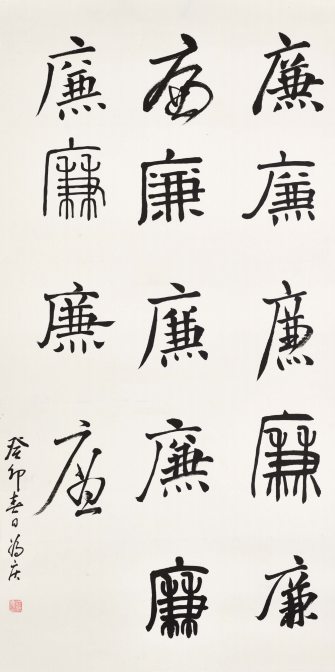 廉廉廉廉廉
廉廉廉廉廉
廉廉廉廉
癸卯春日